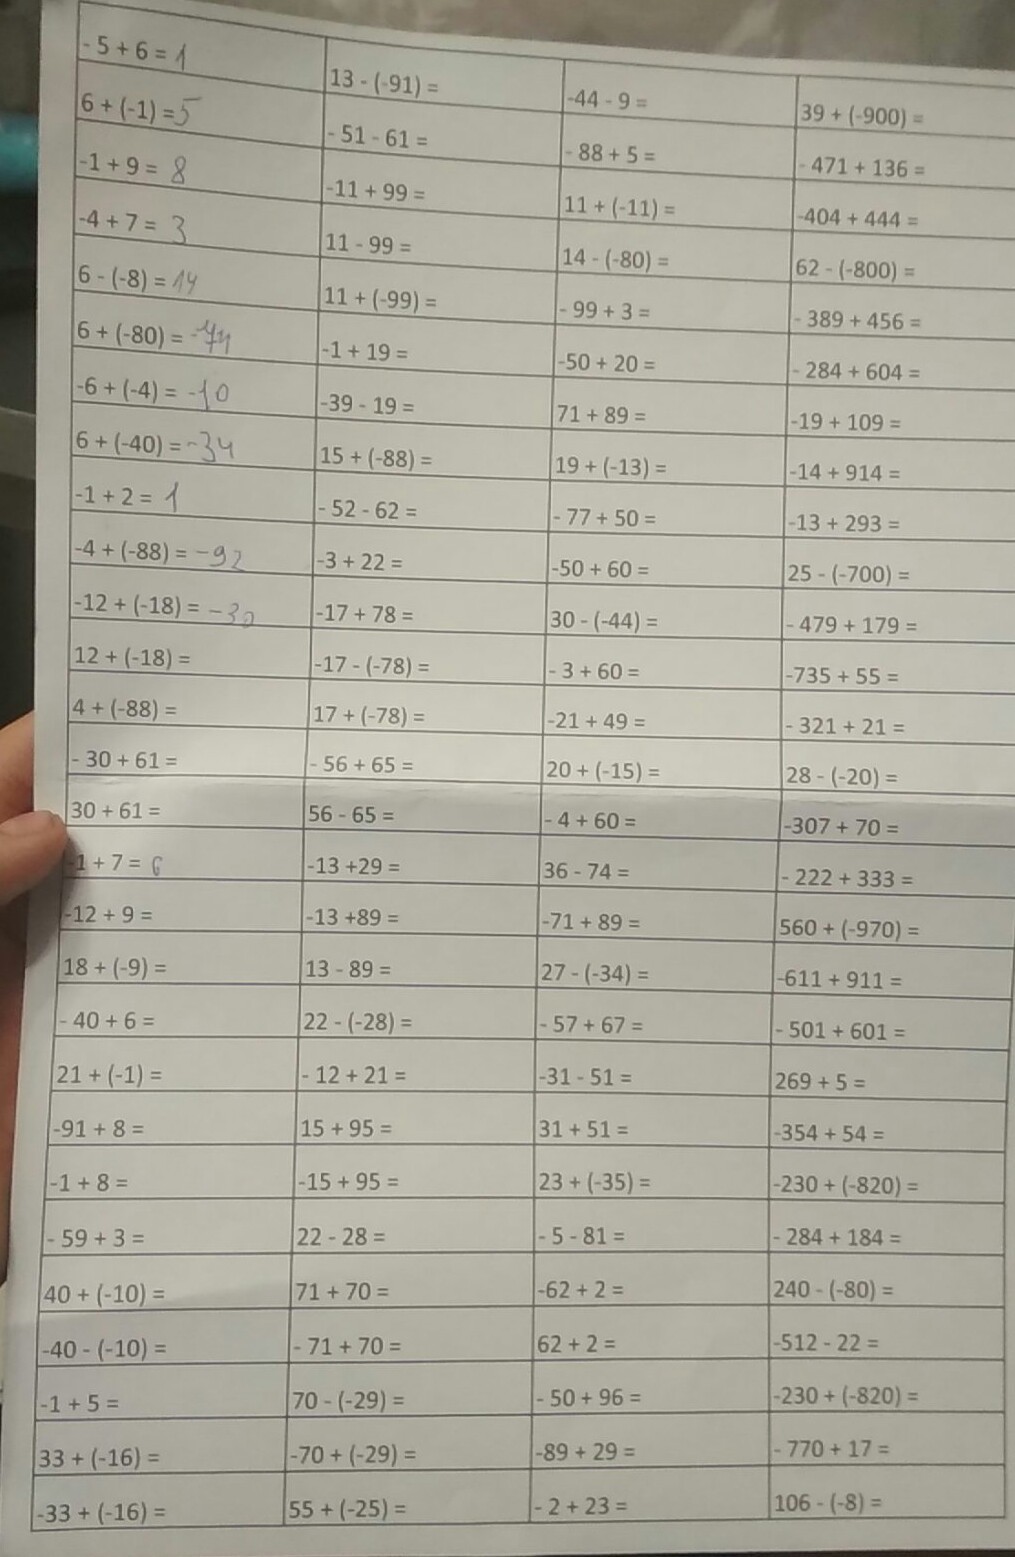 - 5 + 6 = 1
6 + (-1) = 5
-1 + 9 = 8
-4 + 7 = 3
6 - (-8) = 14
6 + (-80) = -74
-6 + (-4) = -10
6 + (-40) = -34
-1 + 2 = 1
-4 + (-88) = -92
-12 + (-18) = -30
12 + (-18) =
4 + (-88) =
- 30 + 61 =
30 + 61 =
-1 + 7 = 6
-12 + 9 =
18 + (-9) =
- 40 + 6 =
21 + (-1) =
-91 + 8 =
-1 + 8 =
- 59 + 3 =
40 + (-10) =
-40 - (-10) =
-1 + 5 =
33 + (-16) =
-33 + (-16) =
13 - (-91) =
- 51 - 61 =
-11 + 99 =
11 - 99 =
11 + (-99) =
-1 + 19 =
-39 - 19 =
15 + (-88) =
- 52 - 62 =
-3 + 22 =
-17 + 78 =
-17 - (-78) =
17 + (-78) =
- 56 + 65 =
56 - 65 =
-13 +29 =
-13 +89 =
13 - 89 =
22 - (-28) =
- 12 + 21 =
15 + 95 =
-15 + 95 =
22 - 28 =
71 + 70 =
- 71 + 70 =
70 - (-29) =
-70 + (-29) =
55 + (-25) =
-44 - 9 =
- 88 + 5 =
11 + (-11) =
14 - (-80) =
- 99 + 3 =
-50 + 20 =
71 + 89 =
19 + (-13) =
- 77 + 50 =
-50 + 60 =
30 - (-44) =
- 3 + 60 =
-21 + 49 =
20 + (-15) =
- 4 + 60 =
36 - 74 =
-71 + 89 =
27 - (-34) =
- 57 + 67 =
-31 - 51 =
31 + 51 =
23 + (-35) =
- 5 - 81 =
-62 + 2 =
62 + 2 =
- 50 + 96 =
-89 + 29 =
- 2 + 23 =
39 + (-900) =
- 471 + 136 =
-404 + 444 =
62 - (-800) =
- 389 + 456 =
- 284 + 604 =
-19 + 109 =
-14 + 914 =
-13 + 293 =
25 - (-700) =
- 479 + 179 =
-735 + 55 =
- 321 + 21 =
28 - (-20) =
-307 + 70 =
- 222 + 333 =
560 + (-970) =
-611 + 911 =
- 501 + 601 =
269 + 5 =
-354 + 54 =
-230 + (-820) =
- 284 + 184 =
240 - (-80) =
-512 - 22 =
-230 + (-820) =
- 770 + 17 =
106 - (-8) =